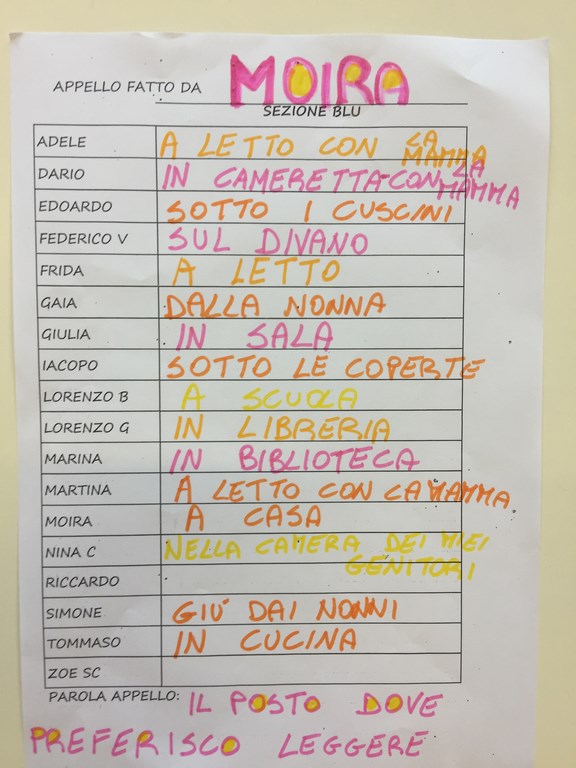 APPELLO FATTO DA MOIRA
SEZIONE BLU
ADELE A LETTO CON LA MAMMA
DARIO IN CAMERETTA CON LA MAMMA
EDOARDO SOTTO I CUSCINI
FEDERICO V SUL DIVANO
FRIDA A LETTO
GAIA DALLA NONNA
GIULIA IN SALA
IACOPO SOTTO LE COPERTE
LORENZO B A SCUOLA
LORENZO G IN LIBRERIA
MARINA IN BIBLIOTECA
MARTINA A LETTO CON LA MAMMA
MOIRA A CASA
NINA C NELLA CAMERA DEI MIEI GENITORI
RICCARDO
SIMONE GIU' DAI NONNI
TOMMASO IN CUCINA
ZOE SC
PAROLA APPELLO: IL POSTO DOVE
PREFERISCO LEGGERE